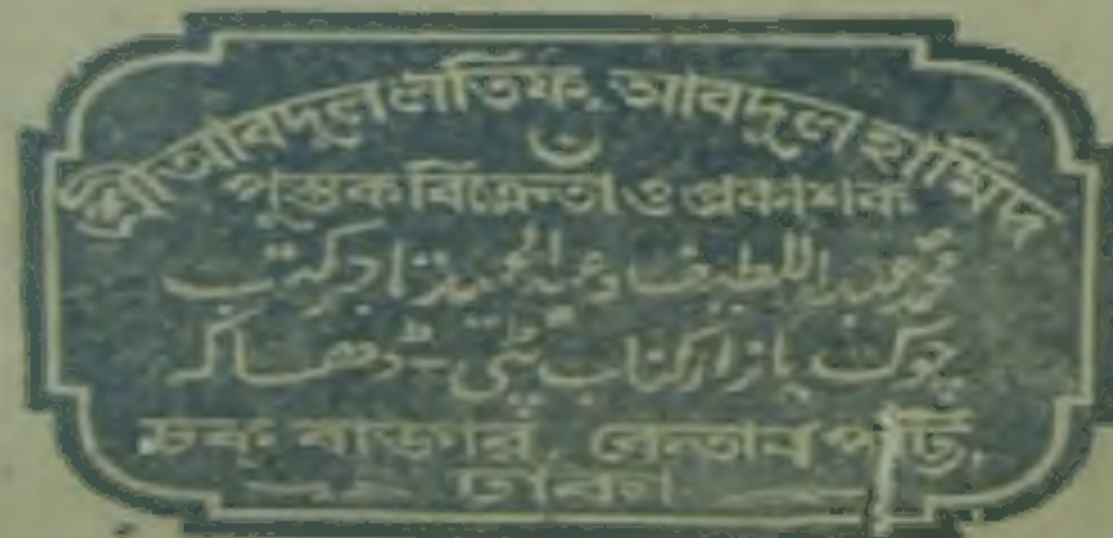 শ্রীআবদুললতিফ, আবদুল হামিদ
পুস্তক বিক্রেতা ও প্রকাশক
محمد عبد اللطيف وعبد الحميد تاجر كتب
چوک بازار کتاب پٹی - ڈھاکہ
চক বাজার, কেতাব পট্টি,
ঢাকা